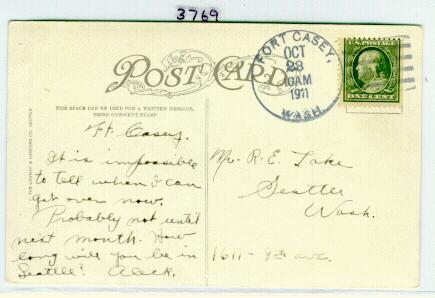 3769
POST CARD
THIS SPACE CAN BE USED FOR A WRITTEN MESSAGE,
USING ONE-CENT STAMP
FORT CASEY,
OCT
23
10AM
1911
WASH.
U.S. POSTAGE
ONE CENT
Ft. Casey.
It is impossible
to tell when I can
get over now.
Probably not until
next month. How
long will you be in
Seattle? Aleck.
Mr. R. E. Lake
Seattle
Wash.
1611 - 9th ave.